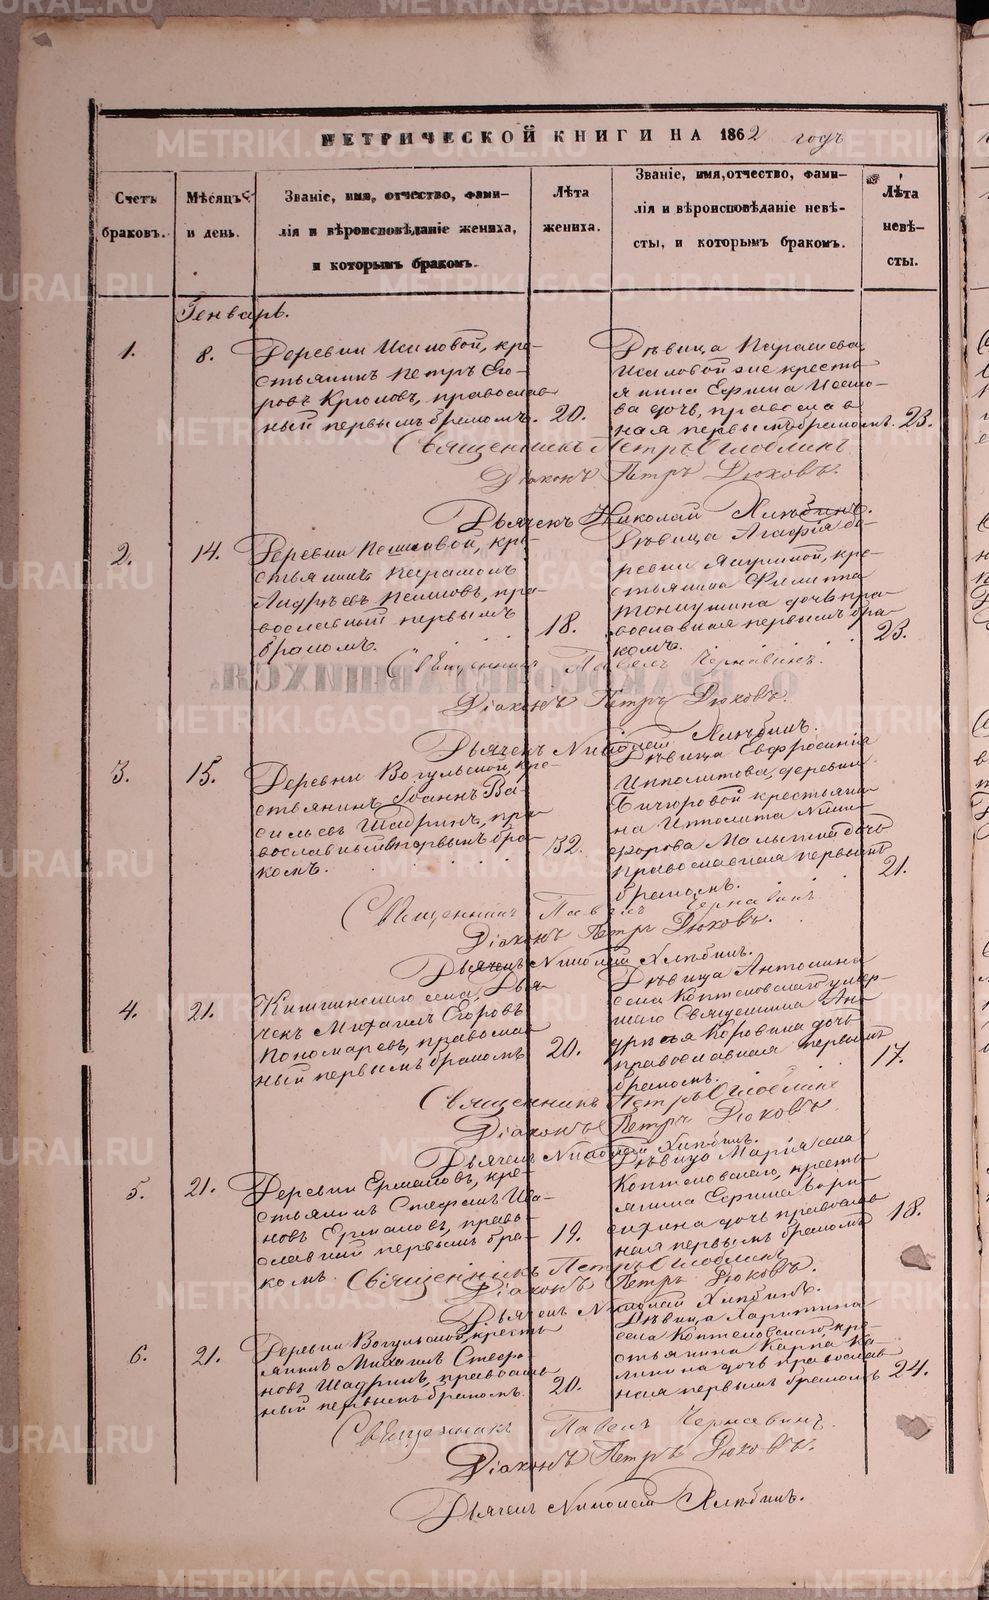 МЕТРИЧЕСКОЙ КНИГИ НА 1862 годъ
Счетъ браковъ.
Мѣсяцъ и день.
Званіе, имя, отчество, фами-
лія и вѣроисповѣданіе жениха,
и которымъ бракомъ.
Лѣта жениха.
Званіе, имя, отчество, фами-
лія и вѣроисповѣданіе невѣ-
сты, и которымъ бракомъ.
Лѣта невѣ-
сты.
Генварь.
1.
8.
Деревни Исаковой, кре-
стьянинъ Петръ Его-
ровъ Крюковъ, православ
ный первымъ бракомъ.
20.
Дѣвица Параскева,
Исаковой же кресть
янина Ефима
дочь, православ
ная первымъ бракомъ.
23.
Священникъ Петръ
Діаконъ Петръ Дюковъ.
Дьячекъ Николай Хлѣбинъ.
2.
14.
Деревни кре-
стьянинъ Парамонъ
Андрѣевъ пра-
вославный первымъ
бракомъ.
18.
Дѣвица Агафія де-
ревни кре-
стьянина Филипа
дочь пра-
вославная первымъ бра-
комъ.
23.
Священникъ Павелъ Чернавинъ.
Діаконъ Петръ Дюковъ.
Дьячекъ Николай Хлѣбинъ.
3.
15.
Деревни Вогульской, кре-
стьянинъ Іоаннъ Ва-
сильевъ Шадринъ, пра-
вославный первымъ бра-
комъ.
32.
Дѣвица Евфросинія
Ипполитова, деревни
Бичуровой крестьяни-
на Ипполита Ники-
форова Малыгина дочь
православная первымъ
бракомъ.
21.
Священникъ Павелъ Чернавинъ
Діаконъ Петръ Дюковъ.
Дьячекъ Николай Хлѣбинъ.
4.
21.
села, Дья-
чекъ Михаилъ Егоровъ
Пономаревъ, православ
ный первымъ бракомъ
20.
Дѣвица Антонина
села Коптеловскаго умер-
шаго Священника Ан-
дрѣя Коровина дочь
православная первымъ
бракомъ.
17.
Священникъ Петръ
Діаконъ Петръ Дюковъ
Дьячекъ Николай Хлѣбинъ.
5.
21.
Деревни Ермаковъ, кре-
стьянинъ Стефанъ Ива-
новъ Ермаковъ, право-
славный первымъ бра-
комъ
19.
Дѣвица Марія села
Коптеловскаго, кресть
янина Ефима
дочь православ
ная первымъ бракомъ
18.
Священникъ Петръ
Діаконъ Петръ Дюковъ.
Дьячекъ Николай Хлѣбинъ.
6.
21.
Деревни Вогульской, кресть
янинъ Михаилъ Стефа-
новъ Шадринъ, православ
ный первымъ бракомъ.
20.
Дѣвица Харитина
села Коптеловскаго, кре-
стьянина Карпа Ка-
линина дочь православ
ная первымъ бракомъ
24.
Священникъ Павелъ Чернавинъ.
Діаконъ Петръ Дюковъ.
Дьячекъ Николай Хлѣбинъ.
METRIKI.GASO-URAL.RU